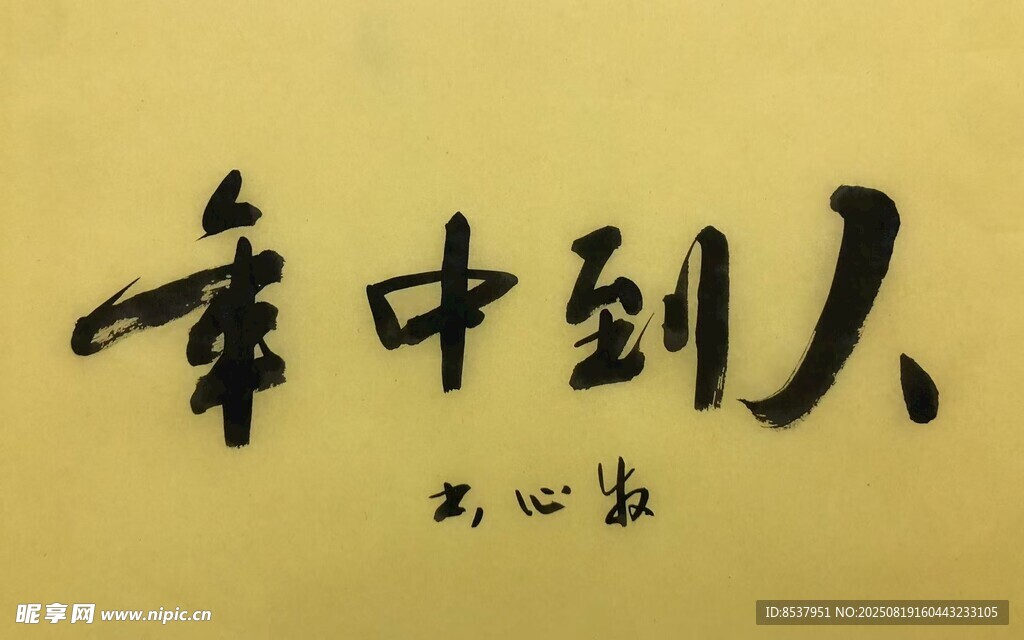 人到中年
牧心书
昵享网 www.nipic.cn
ID:8537951 NO:20250819160443233105